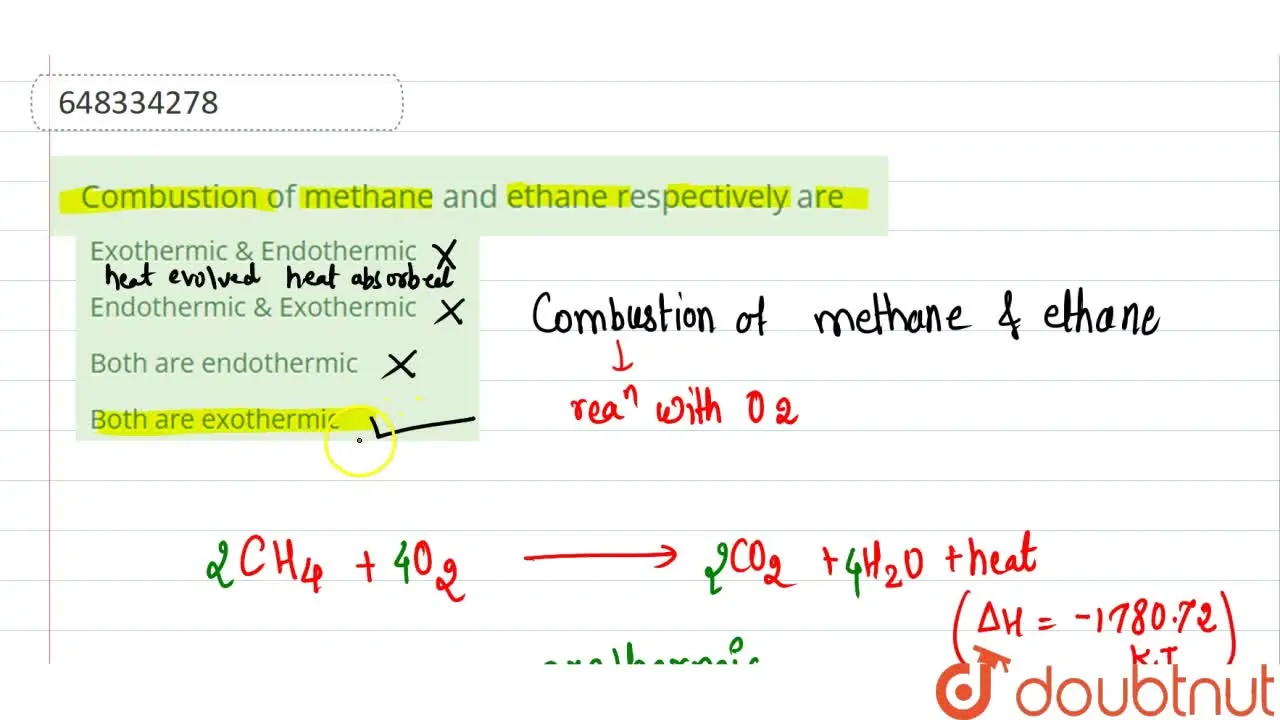 648334278
Combustion of methane and ethane respectively are
Exothermic & Endothermic X
heat evolved heat absorbed
Endothermic & Exothermic X
Both are endothermic X
Both are exothermic ✓
Combustion of methane & ethane
↓
reaⁿ with O2
2CH4 + 4O2 ⟶ 2CO2 + 4H2O + heat
(ΔH = -1780.72
KJ)
exothermic
doubtnut